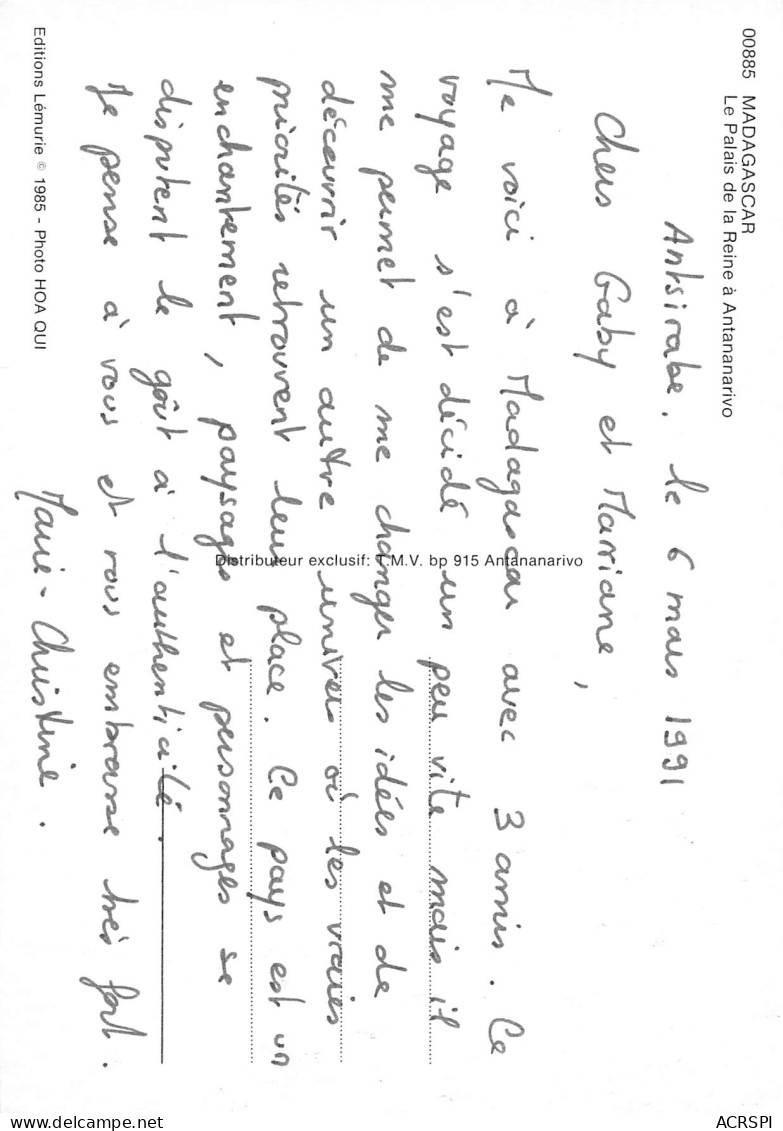 00885 MADAGASCAR
Le Palais de la Reine à Antananarivo
Antsirabe. le 6 mars 1991
Chers Gaby et Marriane,
Me voici à Madagascar avec 3 amis. Ce
voyage s'est décidé un peu vite mais il
me permet de me changer les idées et de
découvrir un autre univers où les vraies
priorités retrouvent leur place. Ce pays est un
enchantement, paysages et personnages se
disputent le goût à l'authenticité.
Je pense à vous et vous embrasse très fort.
Marie-Christine.
Distributeur exclusif: T.M.V. bp 915 Antananarivo
Editions Lémurie © 1985 - Photo HOA QUI
ACRSPI